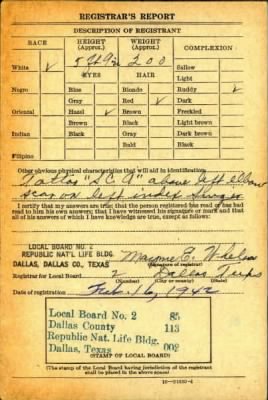 REGISTRAR'S REPORT
DESCRIPTION OF REGISTRANT
RACE HEIGHT (Approx.) WEIGHT (Approx.) COMPLEXION
5 ft 9½ 200
White ✓ EYES HAIR Sallow
Light
Negro Blue Blonde Ruddy ✓
Gray Red ✓ Dark
Oriental Hazel ✓ Brown Freckled
Black Light brown
Indian Black Gray Dark brown
Bald Black
Filipino
Other obvious physical characteristics that will aid in identification
Tattoo "S.C. 9" above left elbow
scar on left index finger
I certify that my answers are true; that the person registered has read or has had
read to him his own answers; that I have witnessed his signature or mark and that
all of his answers of which I have knowledge are true, except as follows:
LOCAL BOARD NO. 2
REPUBLIC NAT'L LIFE BLDG.
DALLAS, DALLAS CO., TEXAS
(Signature of registrar)
Registrar for Local Board 2 Dallas Texas
(Number) (City or county) (State)
Date of registration Feb 16, 1942
Local Board No. 2 85
Dallas County 113
Republic Nat. Life Bldg.
Dallas, Texas 002
(STAMP OF LOCAL BOARD)
(The stamp of the Local Board having jurisdiction of the registrant
shall be placed in the above space)